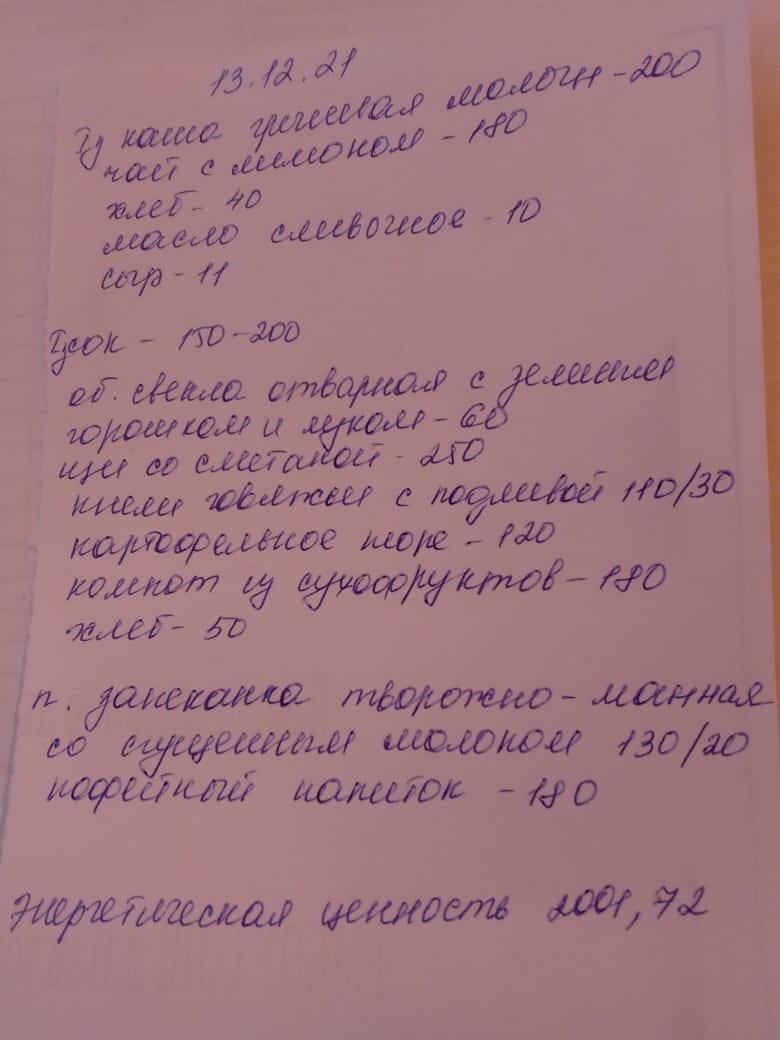 13.12.21
Iз каша гречневая молочн - 200
чай с лимоном - 180
хлеб - 40
масло сливочное - 10
сыр - 11
IIз сок - 150-200
об. свекла отварная с зеленым
горошком и луком - 60
щи со сметаной - 250
кнели говяжьи с подливой 110/30
картофельное пюре - 120
компот из сухофруктов - 180
хлеб - 50
п. запеканка творожно-манная
со сгущенным молоком 130/20
кофейный напиток - 180
Энергетическая ценность 2001,72